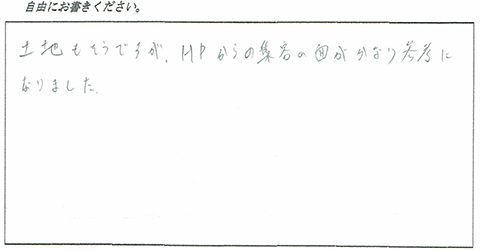 自由にお書きください。
土地もそうですが、HPからの集客の面がかなり参考に
なりました。